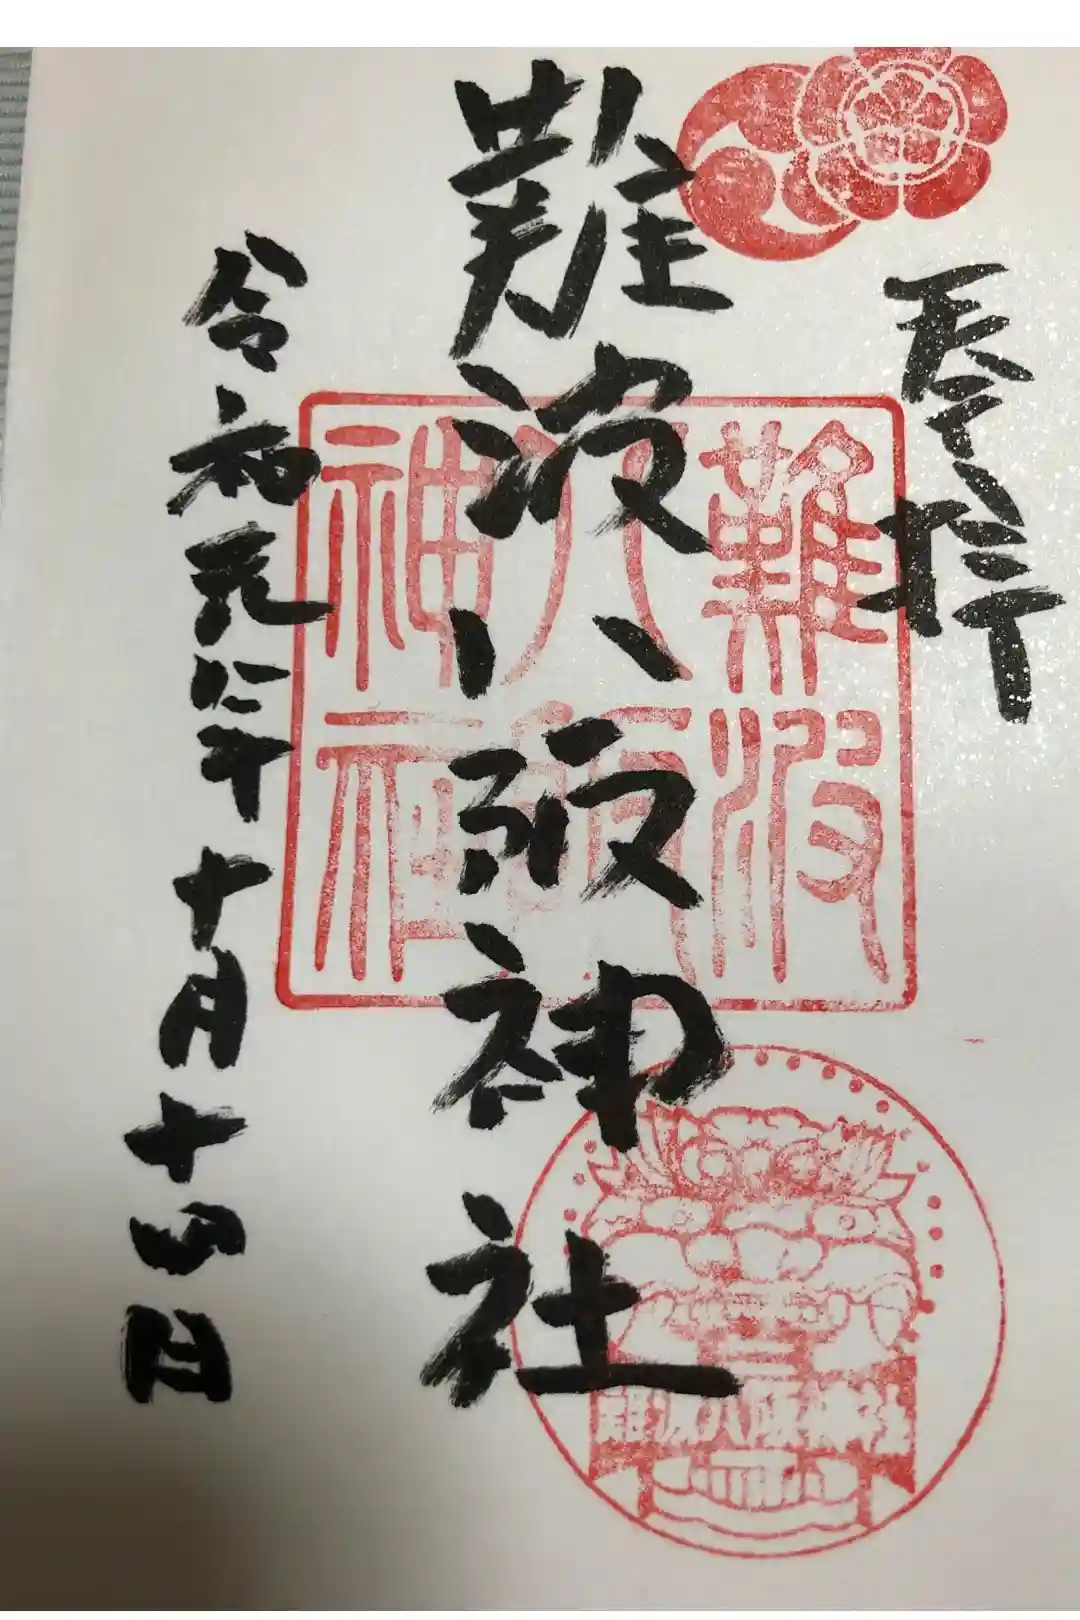 奉拝
難波八阪神社
令和元年十月十四日
難波
八阪
神社
難波八阪神社